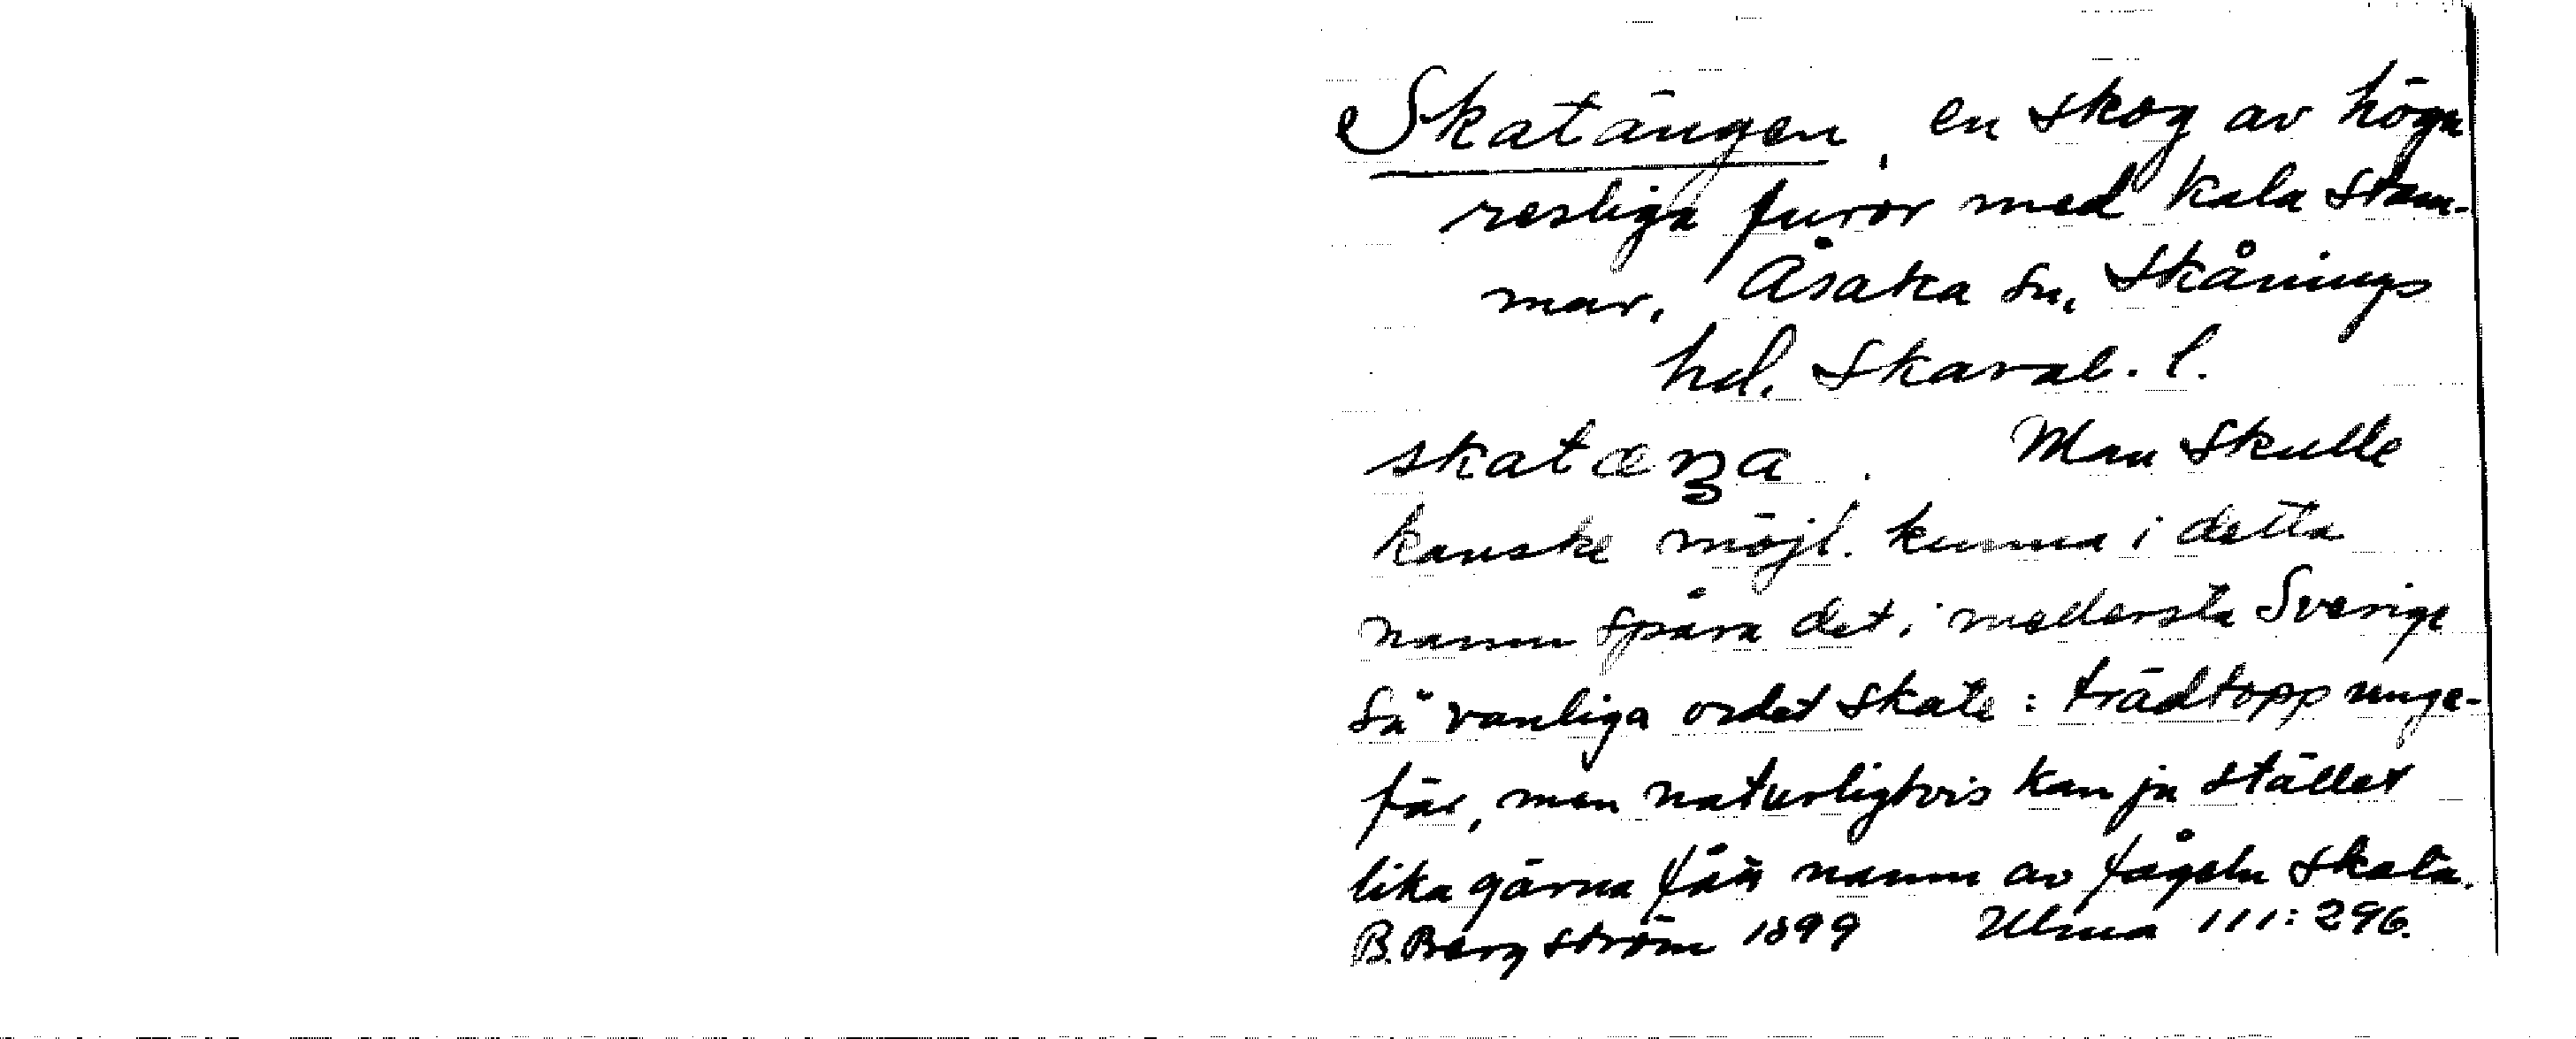 Skatängen, en skog av höga
resliga furor med kala stam-
mar. Åsaka sn, Skånings
hd. Skarab. l.
skatæŋa. Man skulle
kanske möjl. kunna i detta
namn spåra det i mellersta Sverige
så vanliga ordet skate: trädtopp unge-
fär, men naturligtvis kan ju stället
lika gärna fått namn av fågeln skata.
B. Bergström 1899 Ulma 111:296.